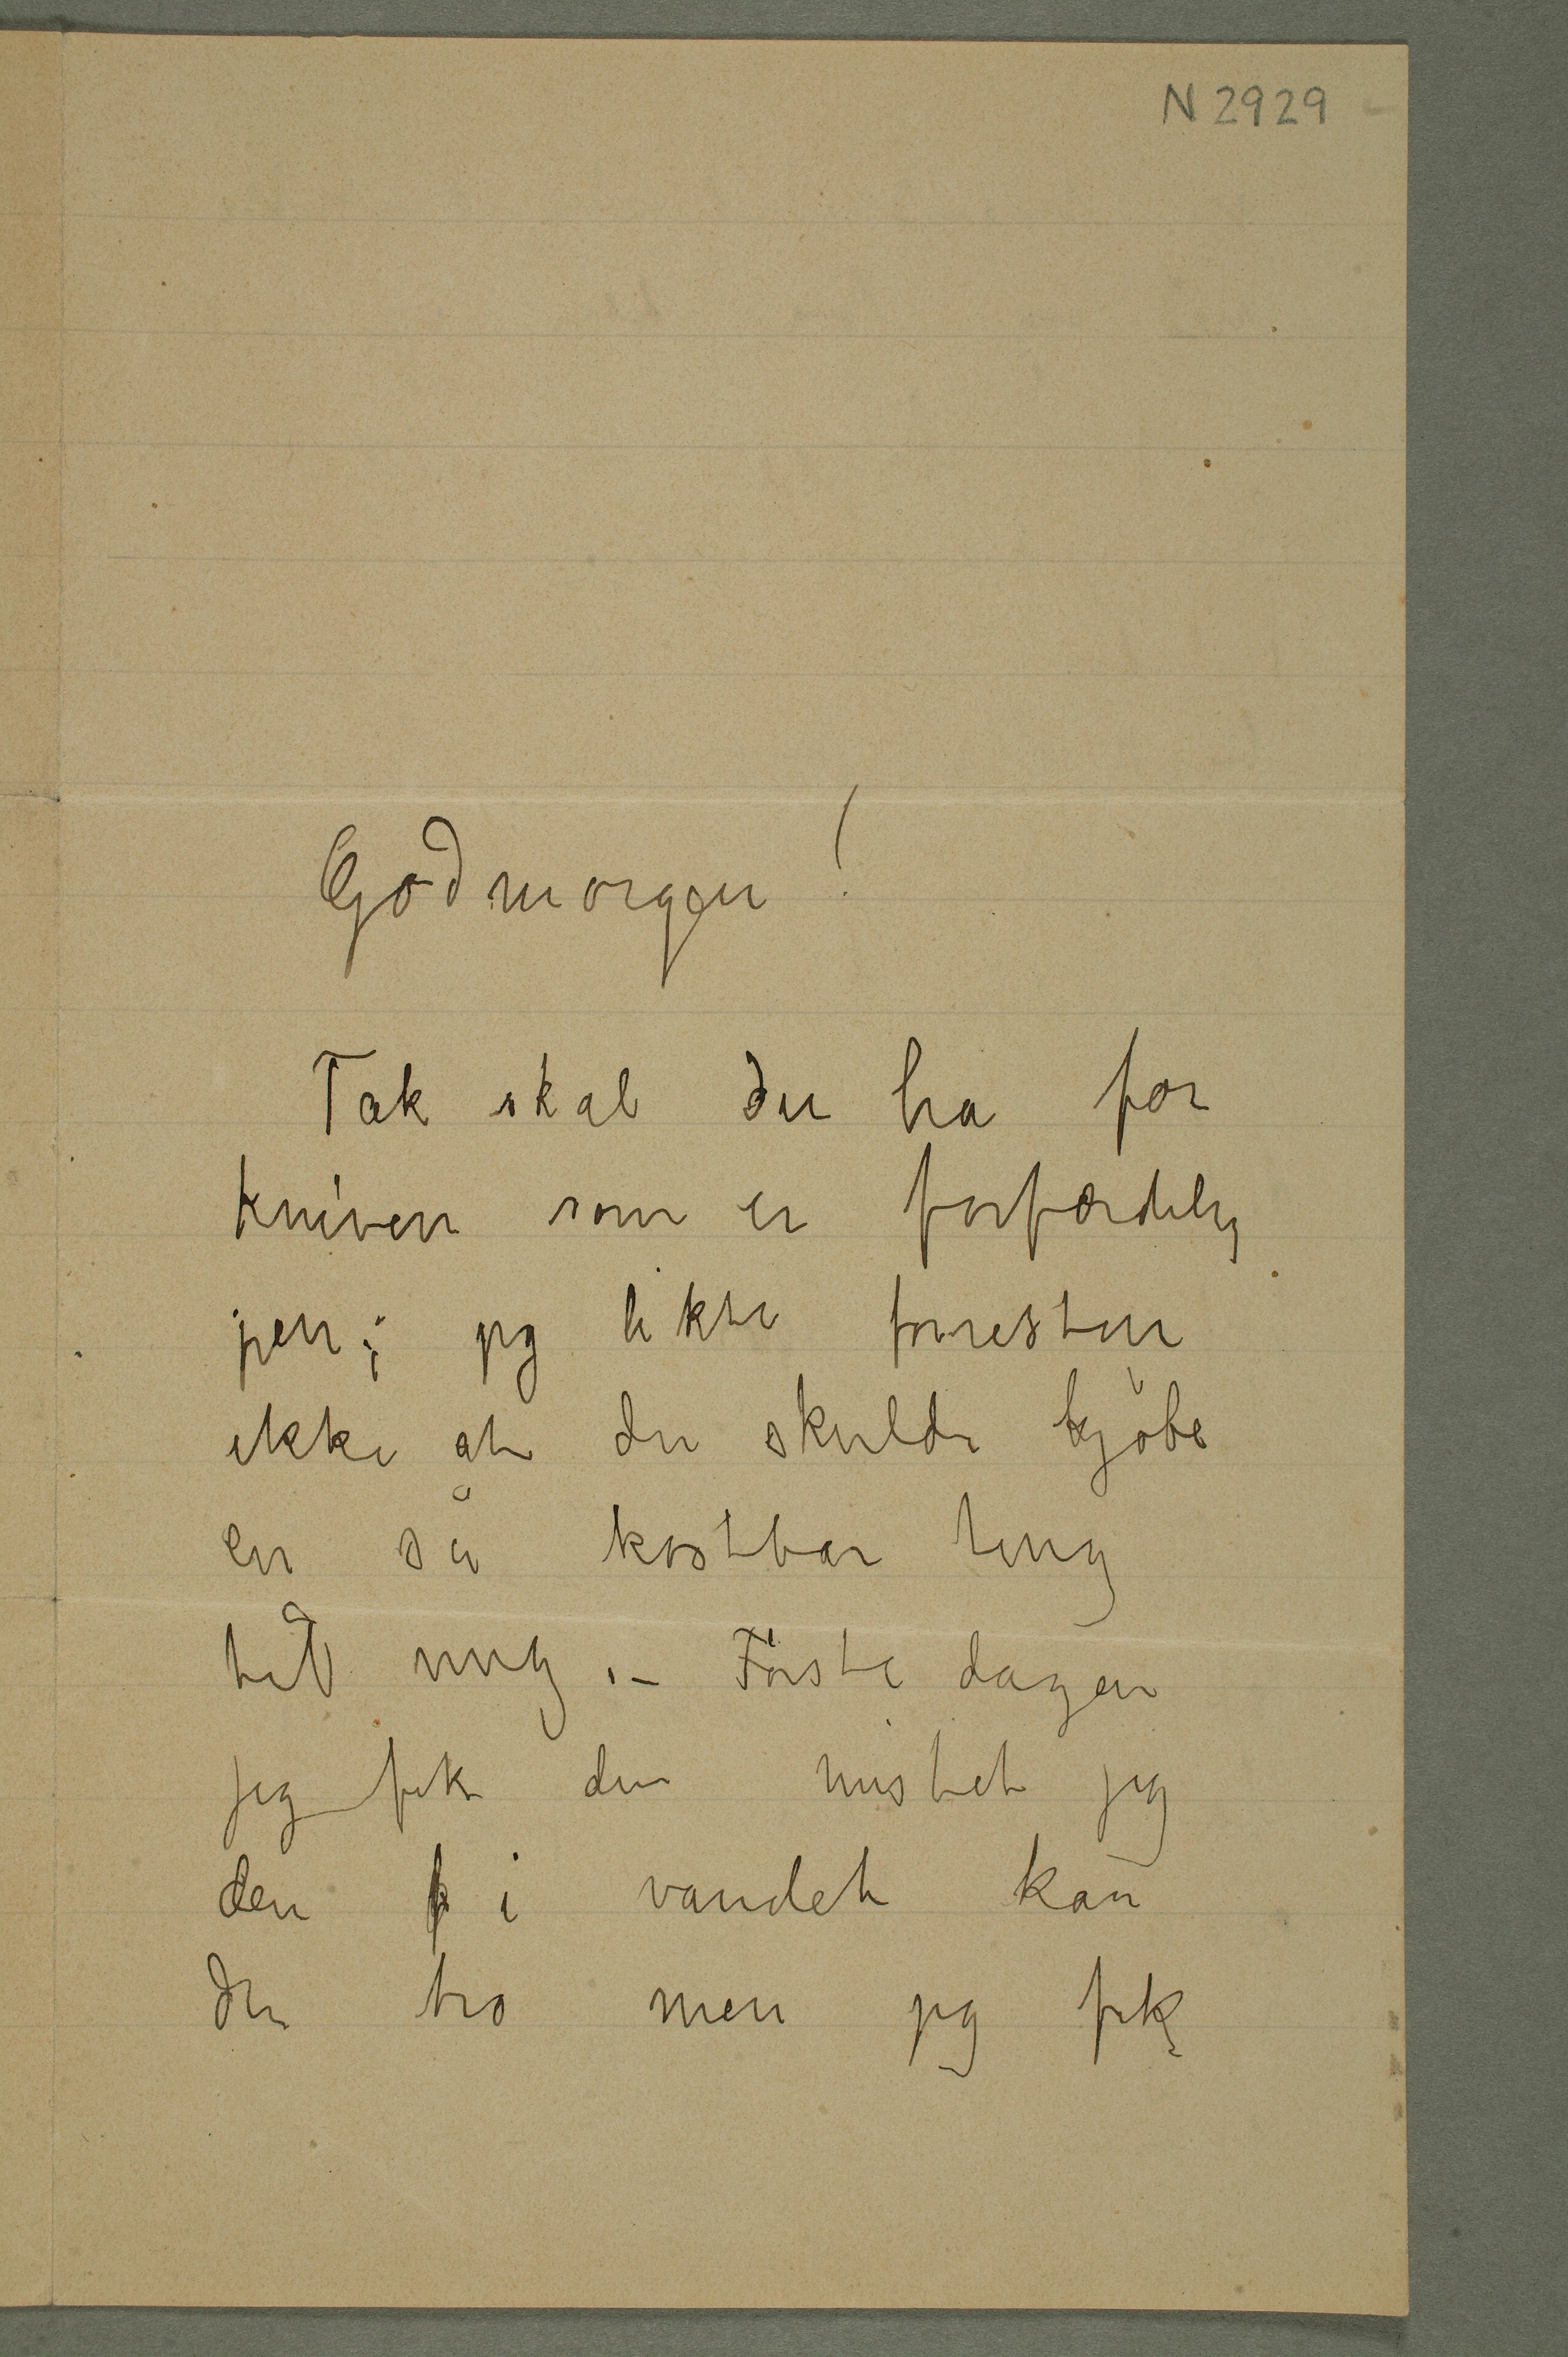 N 2929
Godmorgen!
Tak skal du ha for
kniven som er forfærdelig
pen; jeg likte forresten
ikke at du skulde kjöbe
en så kostbar ting
til mig. – Förste dagen
jeg fik den mistet jeg
den i vandet kan
du tro men jeg fik